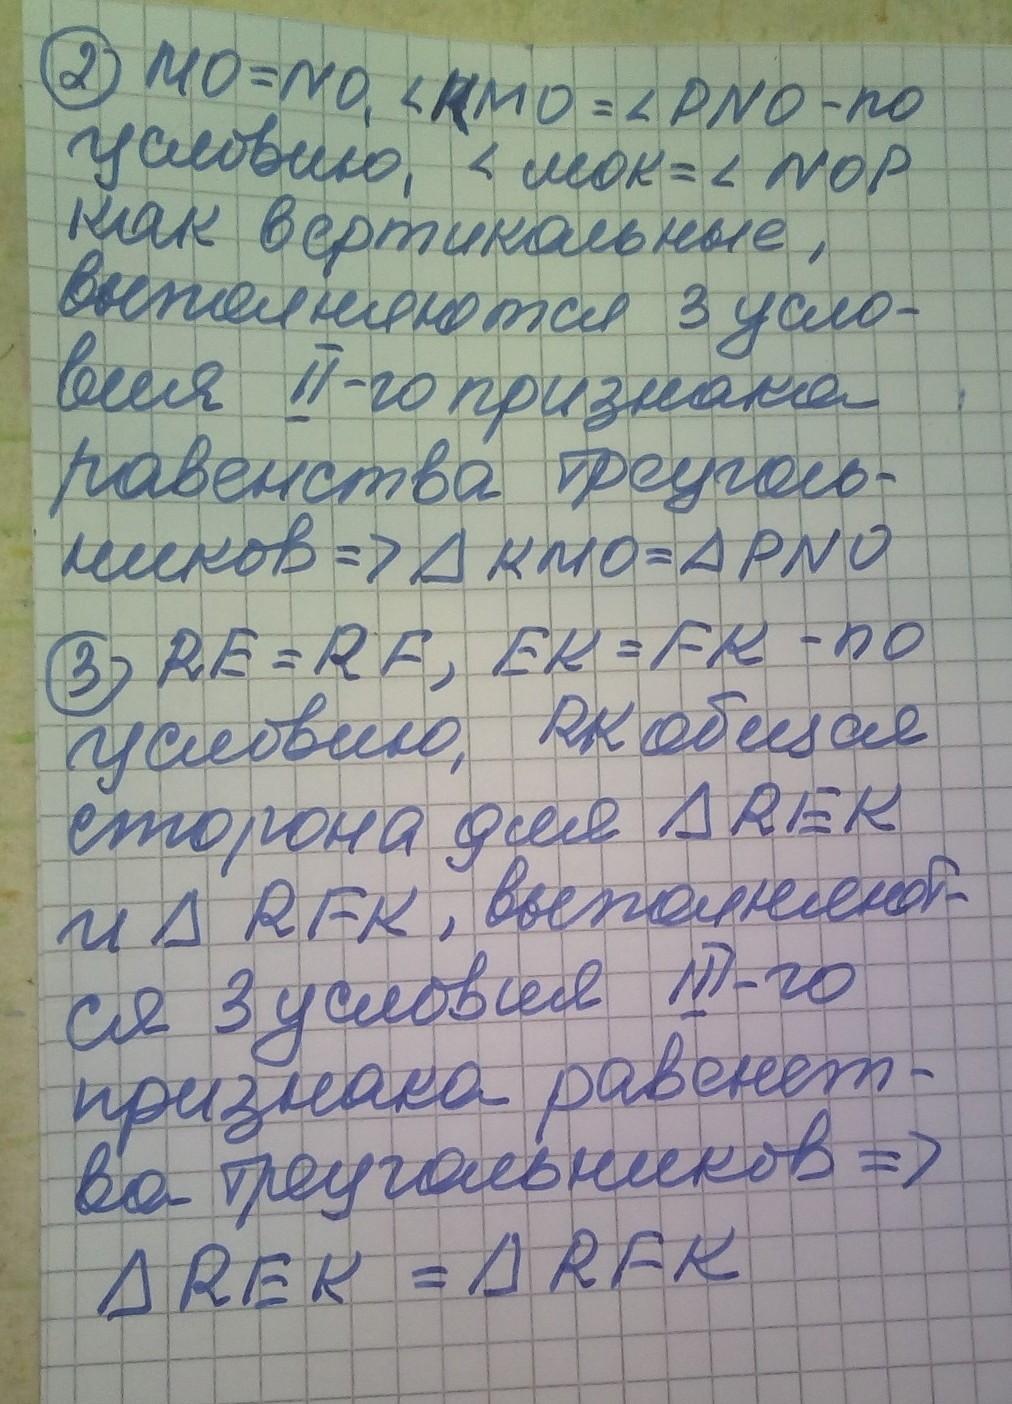 2) MO=NO, <KMO=<PNO-по
условию, <МОК=<NOP
как вертикальные,
выполняются 3 усло-
вия II-го признака
равенства треуголь-
ников=>ΔKMO=ΔPNO
3) RE=RF, EK=FK-по
условию, RK общая
сторона для ΔREK
и ΔRFK, выполняют-
ся 3 условия III-го
признака равенст-
ва треугольников=>
ΔREK=ΔRFK